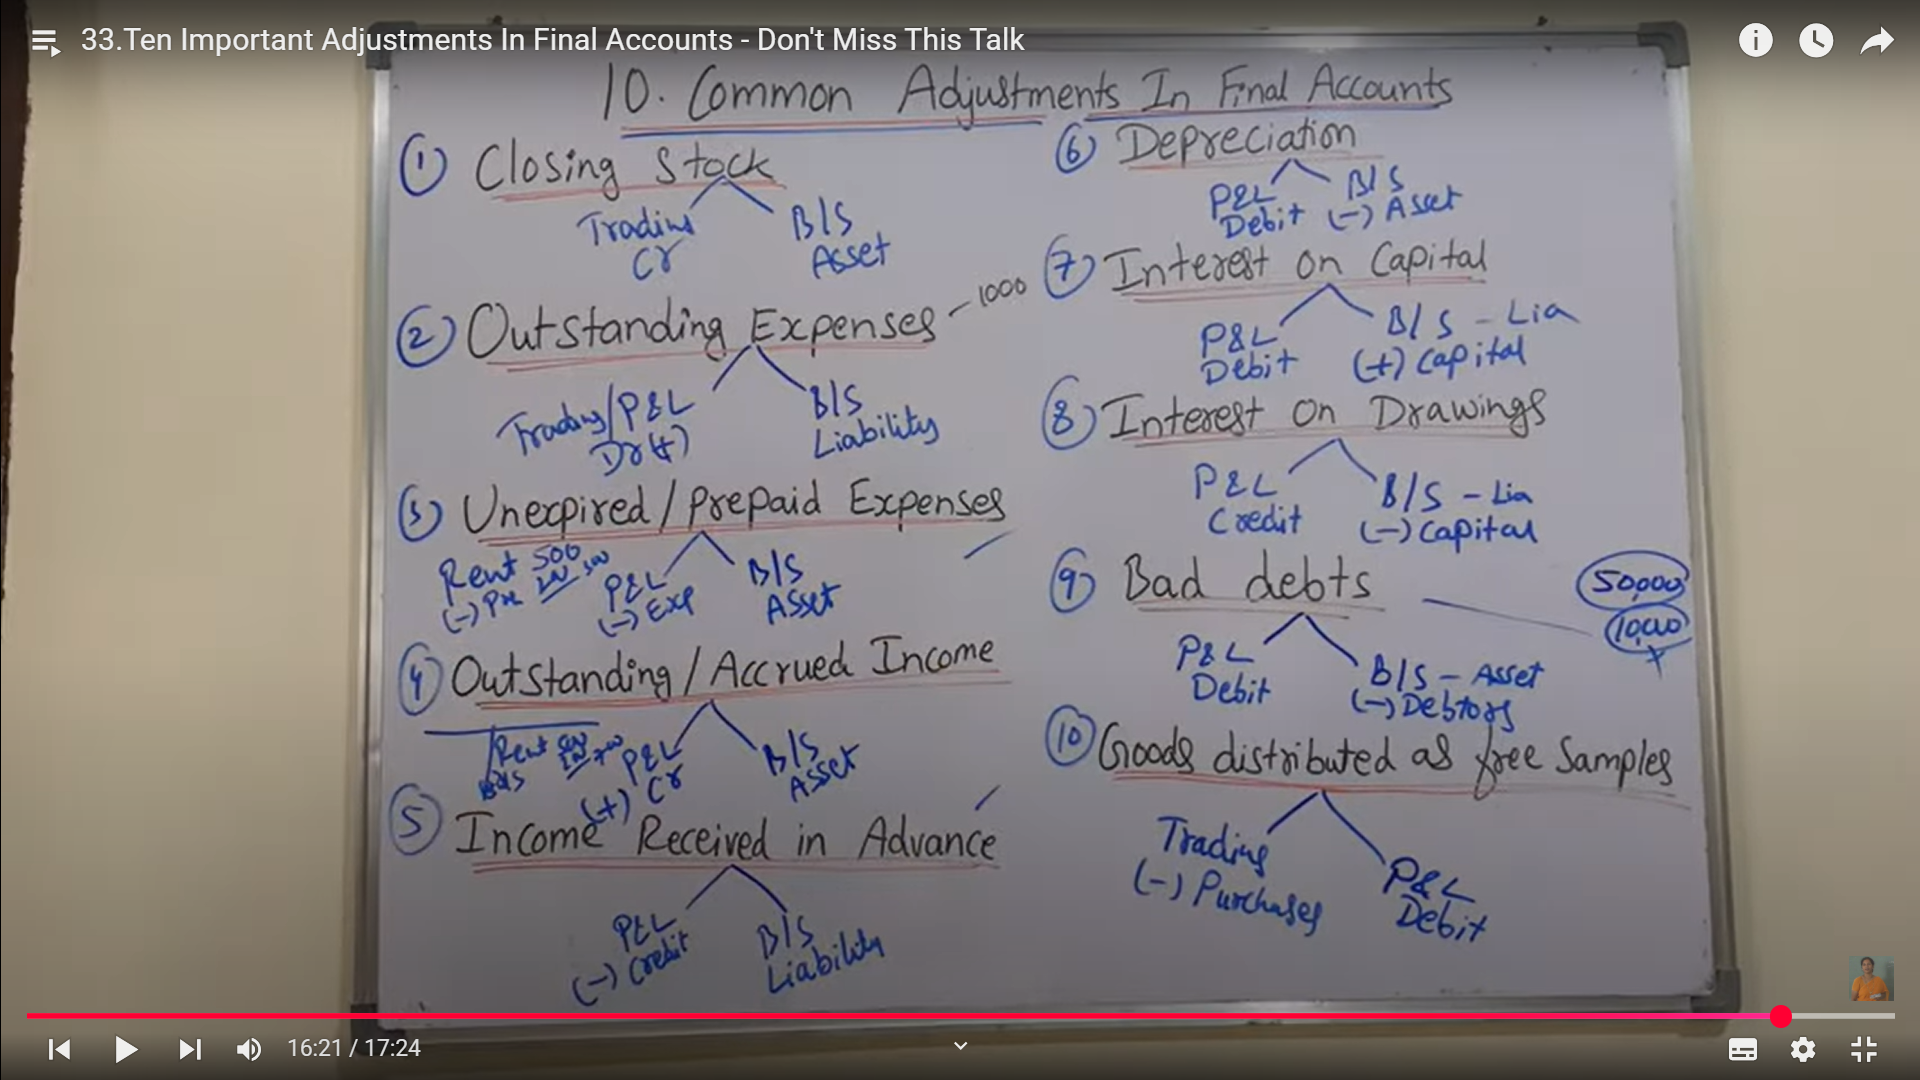 33.Ten Important Adjustments In Final Accounts - Don't Miss This Talk
10. Common Adjustments In Final Accounts
① Closing Stock
Trading
Cr
B/S
Asset
② Outstanding Expenses - 1000
Trading/P&L
Dr (+)
B/S
Liability
③ Unexpired / Prepaid Expenses
Rent 500
(-) Pre
P&L
(-) Exp
B/S
Asset
④ Outstanding / Accrued Income
Rent
P&L
(+) Cr
B/S
Asset
⑤ Income Received in Advance
P&L
(-) Credit
B/S
Liability
⑥ Depreciation
P&L
Debit
B/S
(-) Asset
⑦ Interest on Capital
P&L
Debit
B/S - Lia
(+) Capital
⑧ Interest on Drawings
P&L
Credit
B/S - Lia
(-) Capital
⑨ Bad debts
50,000
P&L
Debit
B/S - Asset
(-) Debtors
⑩ Goods distributed as free Samples
Trading
(-) Purchases
P&L
Debit
16:21 / 17:24